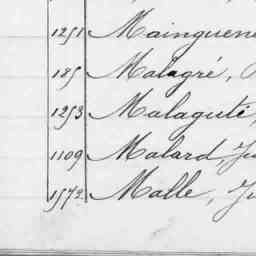 1251 Mainguene
185 Malagré,
1253 Malaguti,
1109 Malard, Ju
1572 Malle, Ju